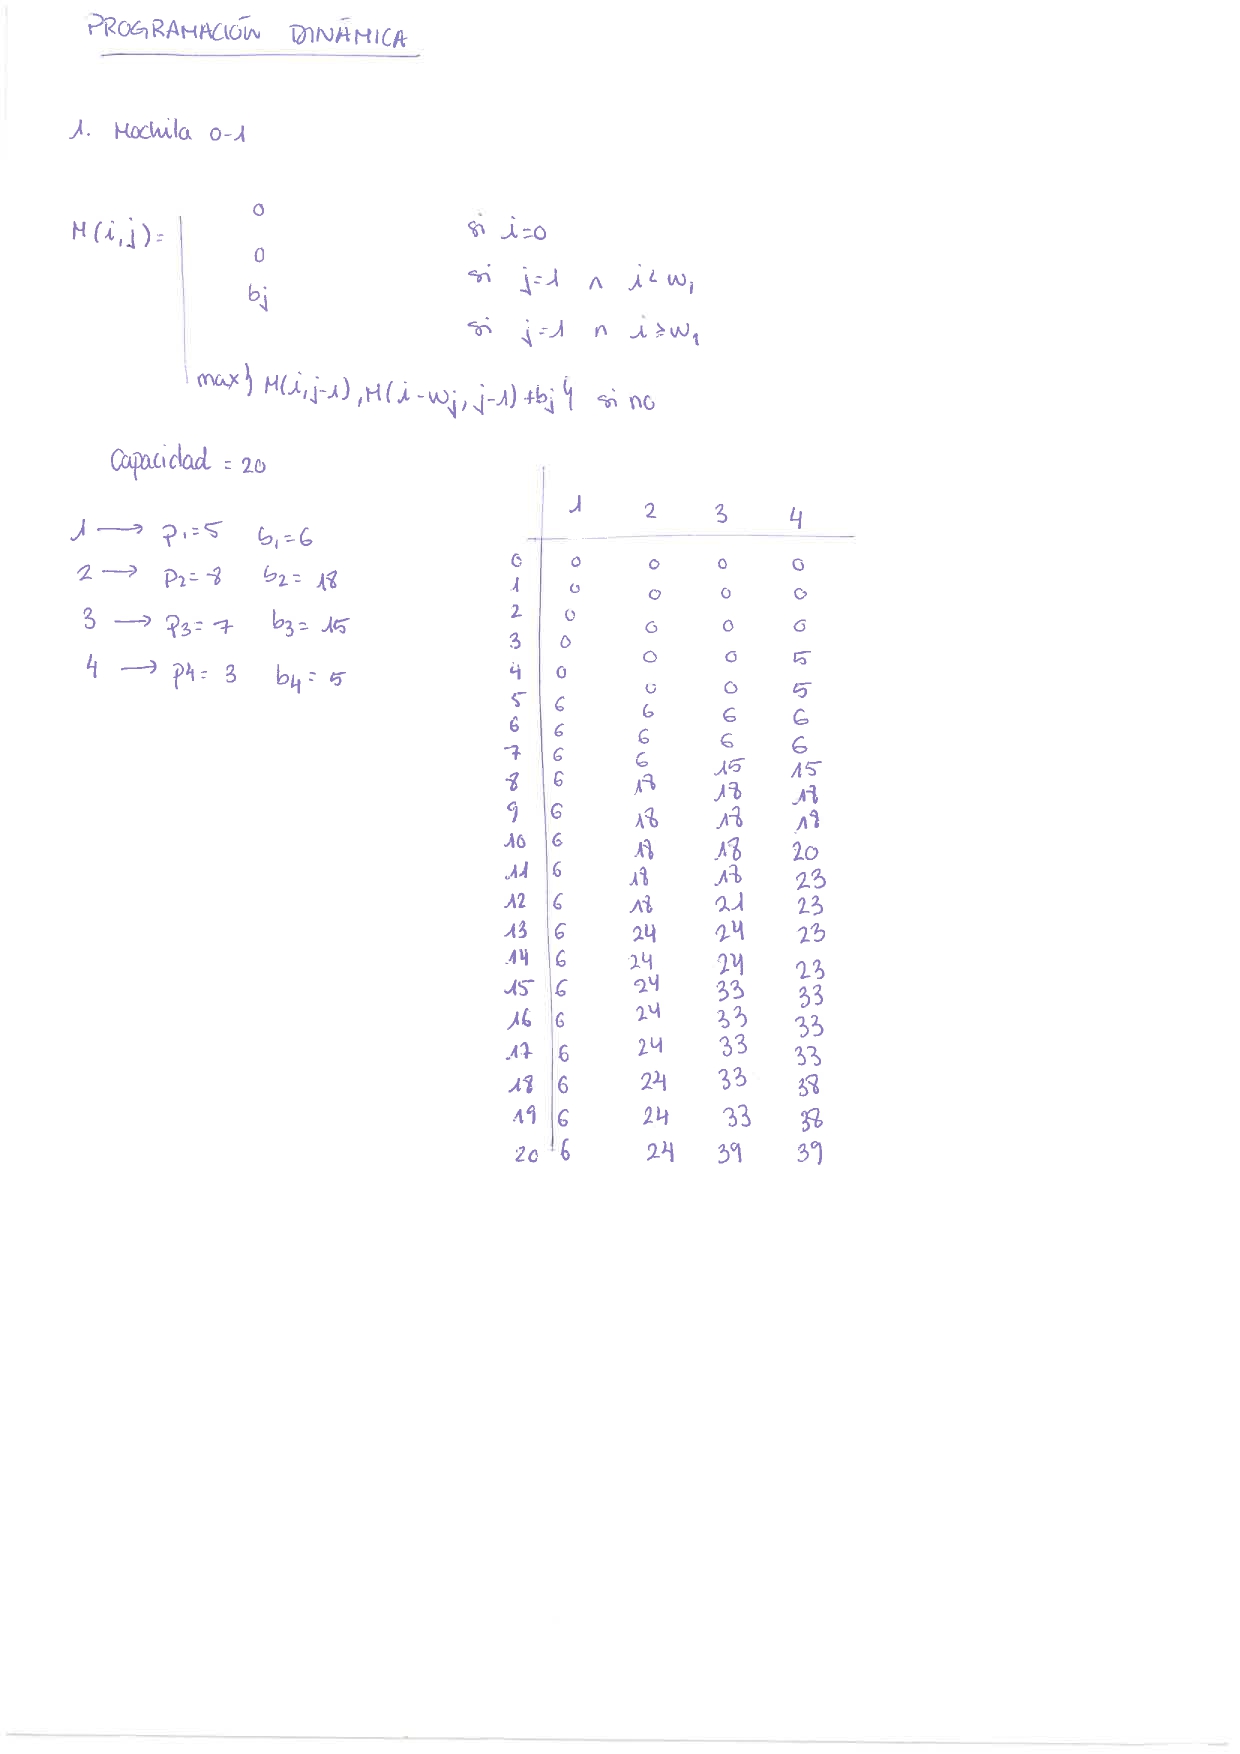 PROGRAMACIÓN DINÁMICA
1. Mochila 0-1
M(i,j)=
0 si i=0
0 si j=1 ∧ i<w1
bj si j=1 ∧ i≥w1
max{ M(i,j-1), M(i-wj, j-1)+bj } si no
Capacidad = 20
1 → p1=5 b1=6
2 → p2=8 b2=18
3 → p3=7 b3=15
4 → p4=3 b4=5
1 2 3 4
0 0 0 0 0
1 0 0 0 0
2 0 0 0 0
3 0 0 0 5
4 0 0 0 5
5 6 6 6 6
6 6 6 6 6
7 6 6 15 15
8 6 18 18 18
9 6 18 18 18
10 6 18 18 20
11 6 18 18 23
12 6 18 21 23
13 6 24 24 23
14 6 24 24 23
15 6 24 33 33
16 6 24 33 33
17 6 24 33 33
18 6 24 33 38
19 6 24 33 38
20 6 24 39 39